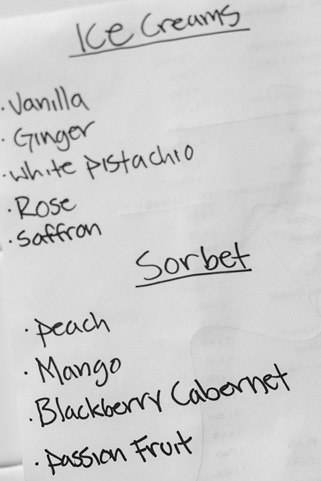 Ice Creams
·Vanilla
·Ginger
·White Pistachio
·Rose
·Saffron
Sorbet
·Peach
·Mango
·Blackberry Cabernet
·Passion Fruit